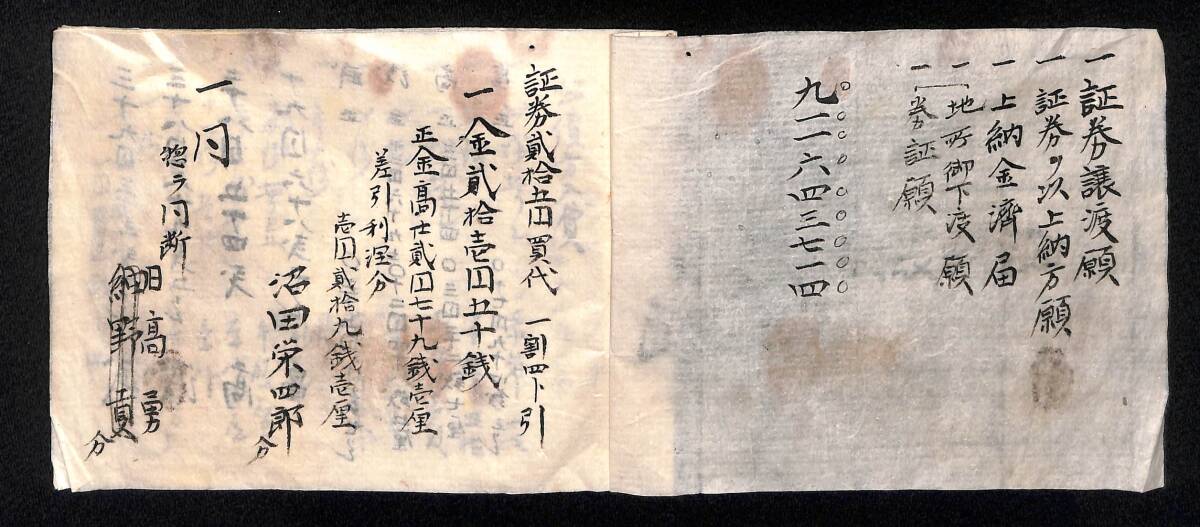 一 証券譲渡願
一 証券ヲ以上納方願
一 上納金済届
一 地所御下渡願
一 券証願
九二六四三七一四
証券貳拾五円買代 一割四ト引
一金貳拾壱円五十銭
正金高廿貳円七十九銭壱厘
差引利潤分
壱円貳拾九銭壱厘
沼田栄四郎分
一 同
惣テ同断
日高勇
網野貢分